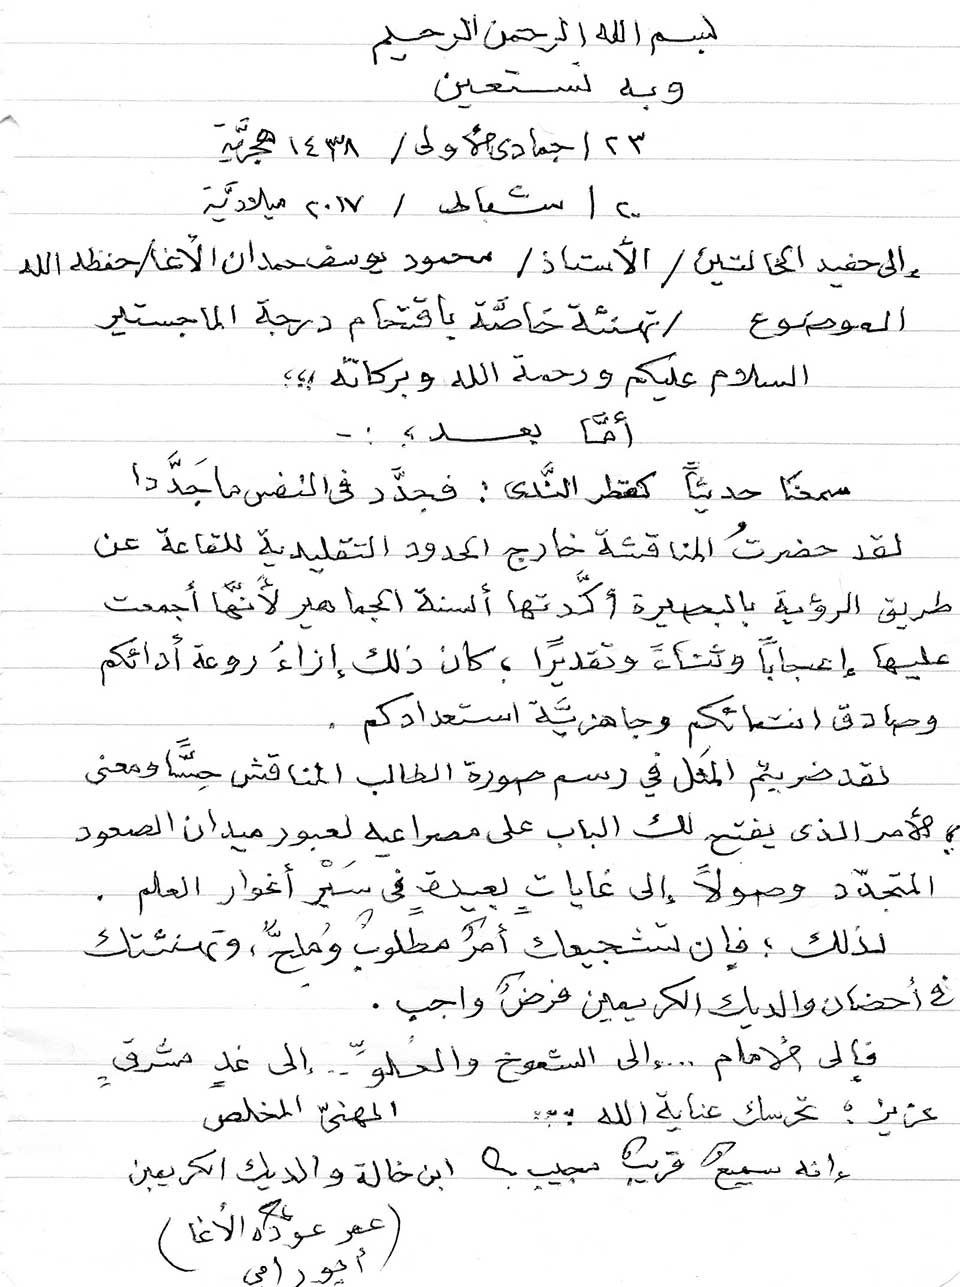 بسم الله الرحمن الرحيم
وبه نستعين
٢٣ / جمادى الأولى / ١٤٣٨ هجريَّة
٢٠ / شباط / ٢٠١٧ ميلاديَّة
إلى حفيد الخالتين / الأستاذ / محمود يوسف حمدان الأغا / حفظه الله
الموضوع / تهنئة خاصَّة باقتحام درجة الماجستير
السلام عليكم ورحمة الله وبركاته ،،،
أمَّا بعد ؛ : -
سمعنا حديثاً كقطر النَّدى : فجدَّد في النفس ما جَدَّدا
لقد حضرتُ المناقشة خارج الحدود التقليدية للقاعة عن
طريق الرؤية بالبصيرة أكَّدتها ألسنة الجماهير لأنَّها أجمعت
عليها إعجاباً وثناءً وتقديرًا ، كان ذلك إزاءَ روعة أدائكم
وصادق انتمائكم وجاهزيَّة استعدادكم .
لقد ضربتم المثل في رسم صورة الطالب المناقش حِسًّا ومعنى
الأمر الذى يفتح لك الباب على مصراعيه لعبور ميدان الصعود
المتجدّد وصولاً إلى غاياتٍ بعيدةٍ في سَبْرِ أغوار العلم .
لذلك ؛ فإن تشجيعك أمرٌ مطلوبٌ ومُلحٌّ ، وتهنئتك
في أحضان والديك الكريمين فرضٌ واجب .
فإلى الأمام .... إلى الشموخ والعُلوِّ .. إلى غدٍ مشرقٍ
عزيز ؛ تحرسك عناية الله ... المهنئ المخلص
إنه سميعٌ قريبٌ مجيب ابن خالة والديك الكريمين
(عمر عودة الأغا)
أبو رامى